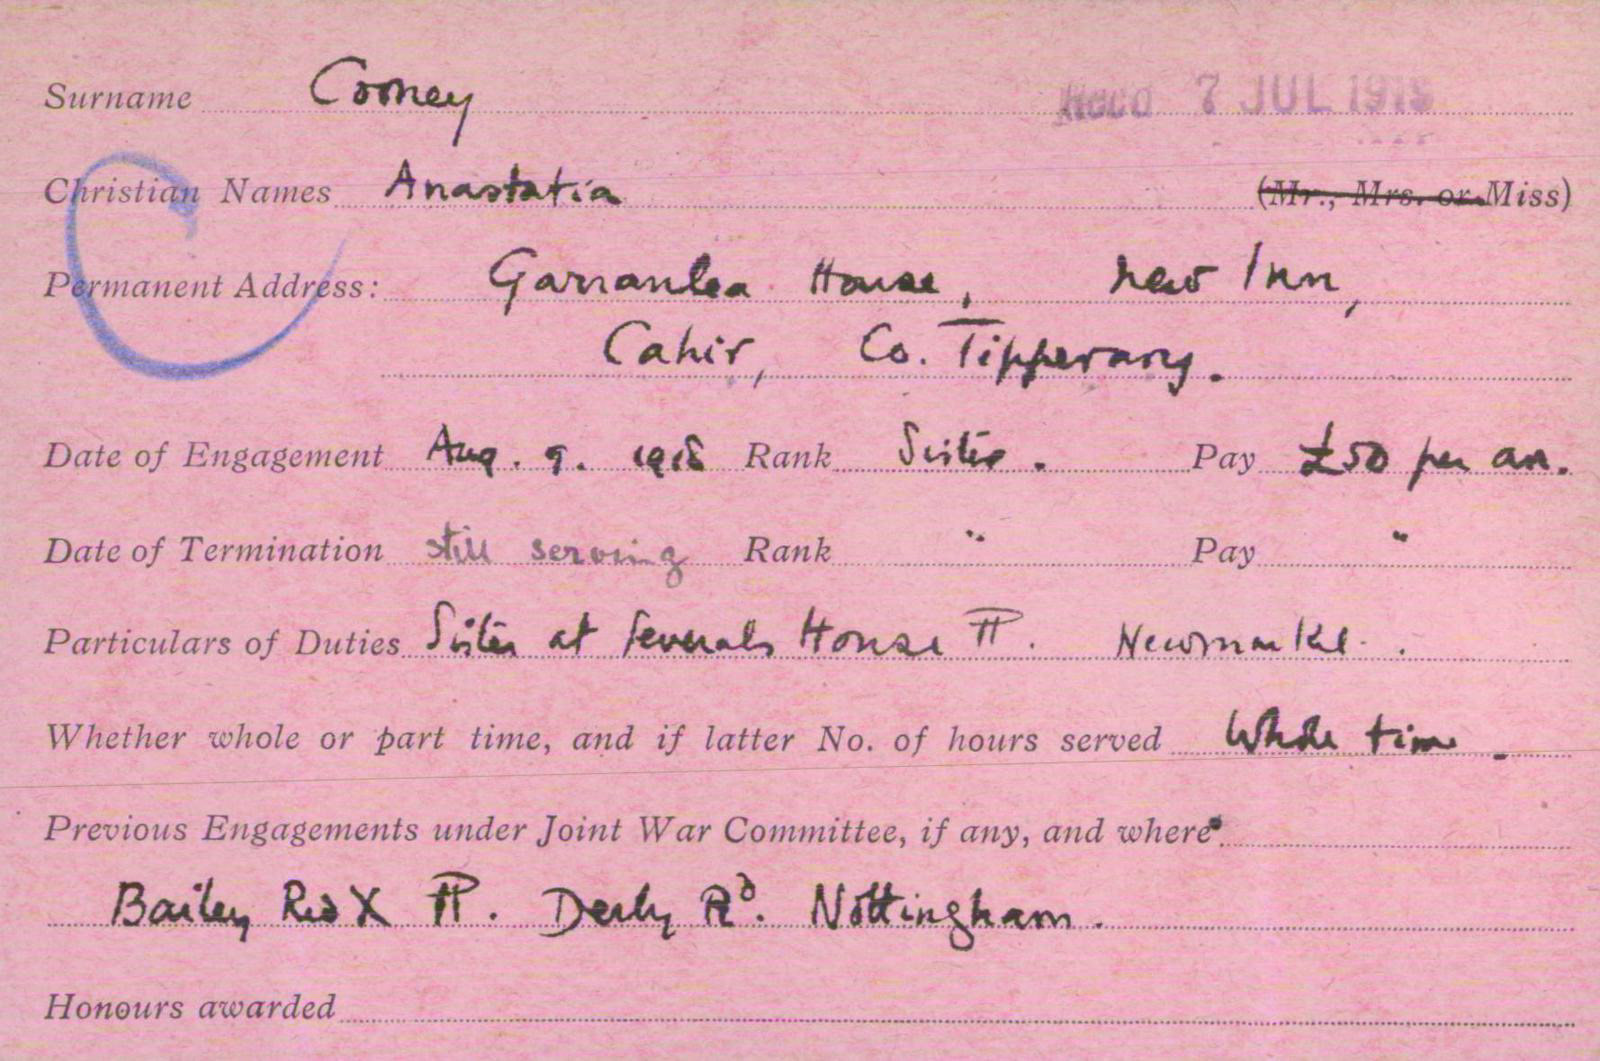 Surname Cooney Recd 7 JUL 1919
Christian Names Anastatia (Mr., Mrs. or Miss)
Permanent Address: Garranlea House, New Inn,
Cahir, Co. Tipperary.
Date of Engagement Aug. 9. 1918 Rank Sister. Pay £50 per an.
Date of Termination still serving Rank " Pay "
Particulars of Duties Sister at Severals House H. Newmarket.
Whether whole or part time, and if latter No. of hours served Whole time.
Previous Engagements under Joint War Committee, if any, and where
Bailey Red X H. Derby Rd. Nottingham.
Honours awarded
C